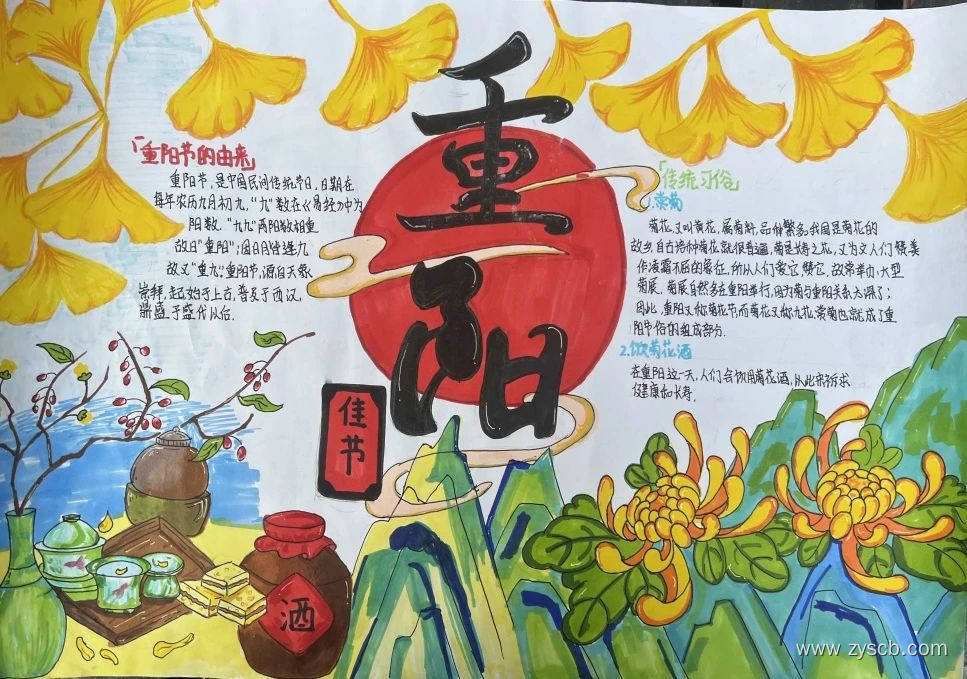 重阳
佳节
「重阳节的由来」
重阳节,是中国民间传统节日,日期在
每年农历九月初九,"九"数在《易经》中为
阳数,"九九"两阳数相重
故曰"重阳";因日月皆逢九
故又"重九".重阳节,源自天象
崇拜,起始于上古,普及于西汉,
鼎盛于盛代以后.
「传统习俗」
1.赏菊
菊花,又叫黄花,属菊科,品种繁多.我国是菊花的
故乡,自古培种菊花就很普遍,菊是长寿之花,又为文人们赞美
作凌霜不屈的象征,所以人们爱它赞它,故常举办大型
菊展.菊展自然多在重阳举行,因为菊与重阳关系太深了;
因此,重阳又称菊花节,而菊花又称九花.赏菊也就成了重
阳节俗的组成部分.
2.饮菊花酒
在重阳这一天,人们会饮用菊花酒,从此来祈求
健康和长寿.
酒
www.zyscb.com